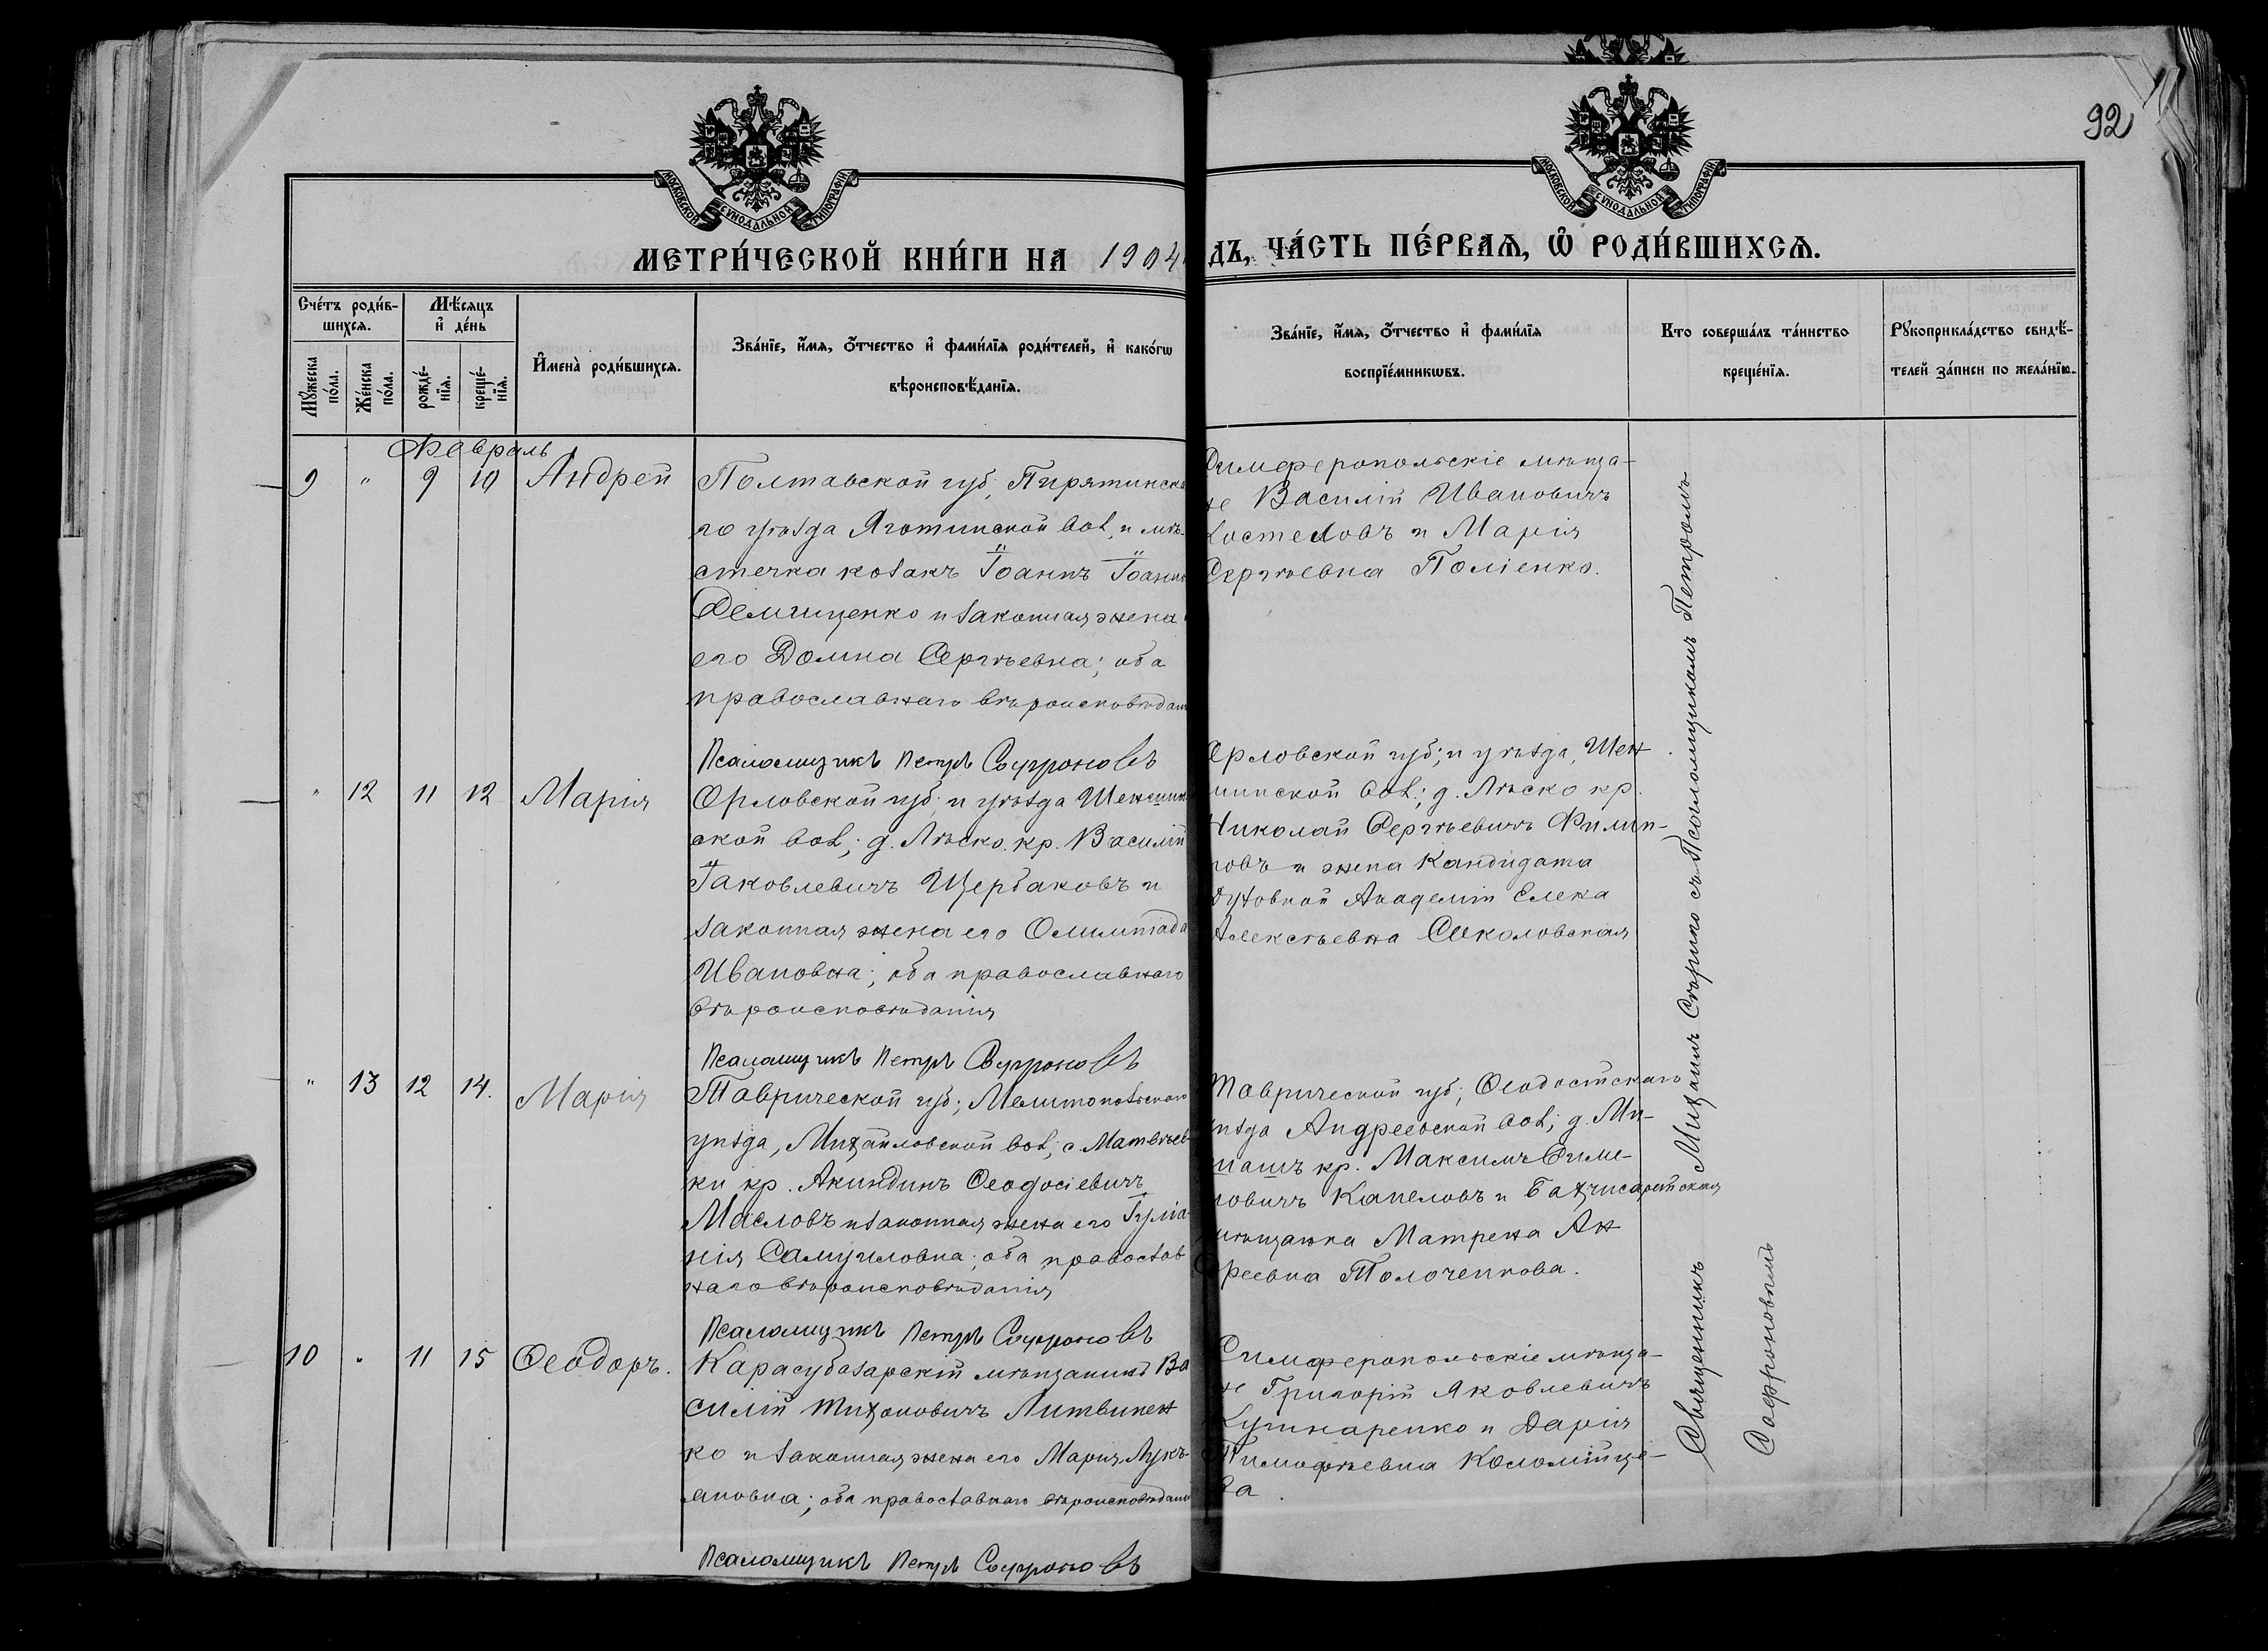 92
МОСКОВСКОЙ СѴНОДАЛЬНОЙ ТИПОГРАФІИ
МОСКОВСКОЙ СѴНОДАЛЬНОЙ ТИПОГРАФІИ
МЕТРИ́ЧЕСКОЙ КНИ́ГИ НА 1904
ДЪ, ЧА́СТЬ ПЕ́РВАЯ, Ѽ РОДИ́ВШИХСЯ.
Сче́тъ роди́в-
шихся.
Мꙋжеска по́ла.
Же́нска по́ла.
Мѣ́сяцъ
и҆ де́нь
рожде́-
нїя.
креще́-
нїя.
И҆мена̀ роди́вшихся.
Зва́нїе, и҆́мя, ѻ҆́тчество и҆ фами́лїя роди́телей, и҆ како́гѡ
вѣроисповѣ́данїя.
Зва́нїе, и҆́мя, ѻ҆́тчество и҆ фами́лїя
воспрїе́мникѡвъ.
Кто соверша́лъ та́инство
креще́нїя.
Рꙋкоприкла́дство свидѣ́-
телей за́писи по жела́нїю.
Февраль
9 " 9 10 Андрей
Полтавской губ; Пирятинска
го уѣзда Яготинской вол, и мѣ-
стечка козакъ Іоаннъ Іоанно
Демищенко и законная жена
его Домна Сергѣевна; оба
православнаго вѣроисповѣдан
Псаломщикъ Петръ Софроновъ
Симферопольскіе мѣща-
не Василій Ивановичъ
Костеловъ и Марія
Сергѣевна Поліенко.
" 12 11 12 Марія
Орловской губ; и уѣзда Шеншин
ской вол; д. Лѣско кр. Василій
Іаковлевичъ Щербаковъ и
законная жена его Олимпіада
Ивановна; оба православнаго
вѣроисповѣданія
Псаломщикъ Петръ Софроновъ
Орловской губ; и уѣзда, Шен
шинской вол; д. Лѣско кр.
Николай Сергѣевичъ Филип-
повъ и жена Кандидата
Духовной Академіи Елена
Алексѣевна Соколовская
" 13 12 14. Марія
Таврической губ; Мелитопольскаго
уѣзда, Михайловской вол; с. Матвѣев
ки кр. Акиндинъ Ѳеодосіевичъ
Масловъ и законная жена его Іуліа
нія Самуиловна; оба правосlав
наго вѣроисповѣданія
Псаломщикъ Петръ Софроновъ
Таврической губ; Ѳеодосійскаго
уѣзда Андреевской вол; д.
кр. Максимъ Симе-
новичъ Капеловъ и Бахчисарайская
мѣщанка Матрена Ан
дреевна Толоченкова.
10 " 11 15 Ѳеодоръ.
Карасубазарскій мѣщанинъ Ва
силій Тихоновичъ Литвинен
ко и законная жена его Марія Лукь
яновна; оба православнаго вѣроисповѣдані
Псаломщикъ Петръ Софроновъ
Симферопольскіе мѣща-
не Григорій Яковлевичъ
Кушнаренко и Дарія
Тимофѣевна Коломійце-
ва.
Священникъ Михаилъ Стѣрико съ Псаломщикомъ Петромъ
Софроновымъ